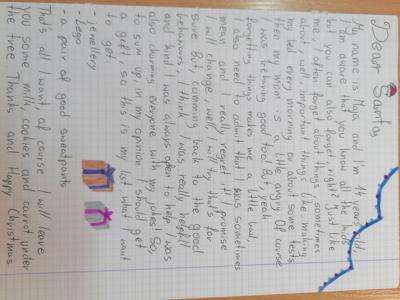 Dear Santa,
My name is Maja and I'm 14 years old,
I am aware that you know all the kids
but you can also forget right? Just like
me, I often forget about things, sometimes
about, well, important things like, making
my bed every morning or about some tests
then my mom is a little angry. Of course
I was behaving good too! But, yeah
forgetting things makes me a little bad,
I also need to admit that I was sometimes
mean and I really regret it! I promise
I will change, well, I will try that's for
sure. But, comming back to the good
behaviours I think I was really helpfull
and kind, I was always open to help, I was
also charming everyone with my jokes! So,
to sum up, in my opinion I should get
a gift, so this is my list what I want
to get
- jewellery
- Lego
- a pair of good sweatpants
That's all I want, of course I will leave
you some milk, cookies and carrot under
the tree. Thanks and Happy Christmas